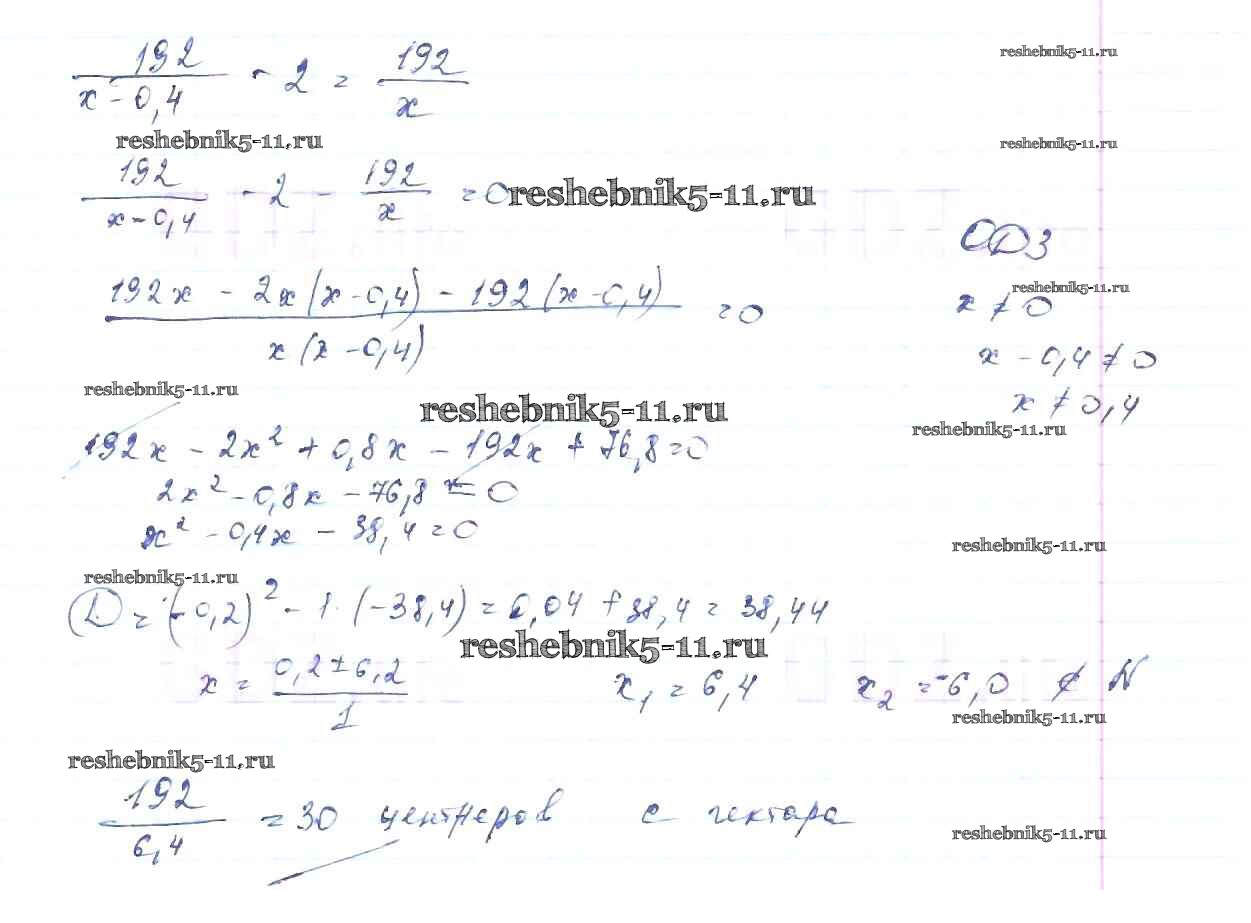 192/(x-0,4) - 2 = 192/x
reshebnik5-11.ru
reshebnik5-11.ru
reshebnik5-11.ru
192/(x-0,4) - 2 - 192/x = 0
reshebnik5-11.ru
ОДЗ
(192x - 2x(x-0,4) - 192(x-0,4))/(x(x-0,4)) = 0
reshebnik5-11.ru
x ≠ 0
x - 0,4 ≠ 0
x ≠ 0,4
reshebnik5-11.ru
reshebnik5-11.ru
reshebnik5-11.ru
192x - 2x² + 0,8x - 192x + 76,8 = 0
2x² - 0,8x - 76,8 = 0
x² - 0,4x - 38,4 = 0
reshebnik5-11.ru
reshebnik5-11.ru
D = (-0,2)² - 1·(-38,4) = 0,04 + 38,4 = 38,44
reshebnik5-11.ru
x = (0,2 ± 6,2)/1 x₁ = 6,4 x₂ = -6,0 ∉ N
reshebnik5-11.ru
reshebnik5-11.ru
192/6,4 = 30 центнеров с гектара
reshebnik5-11.ru